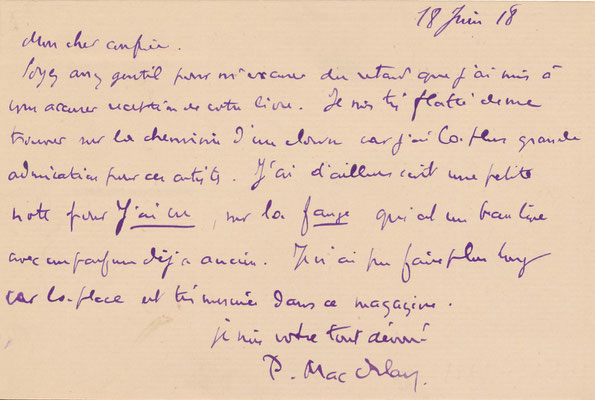 18 Juin 18
Mon cher confrère.
Soyez assez gentil pour m'excuser du retard que j'ai mis à
vous accuser réception de votre livre. Je suis très flatté de me
trouver sur la cheminée d'un clown car j'ai la plus grande
admiration pour ces artistes. J'ai d'ailleurs écrit une petite
note pour J'ai vu, sur la fange qui est un beau livre
avec un parfum déjà ancien. Je n'ai pu faire plus long
car la place est très mesurée dans ce magazine.
je suis votre tout dévoué
P. Mac Orlan.